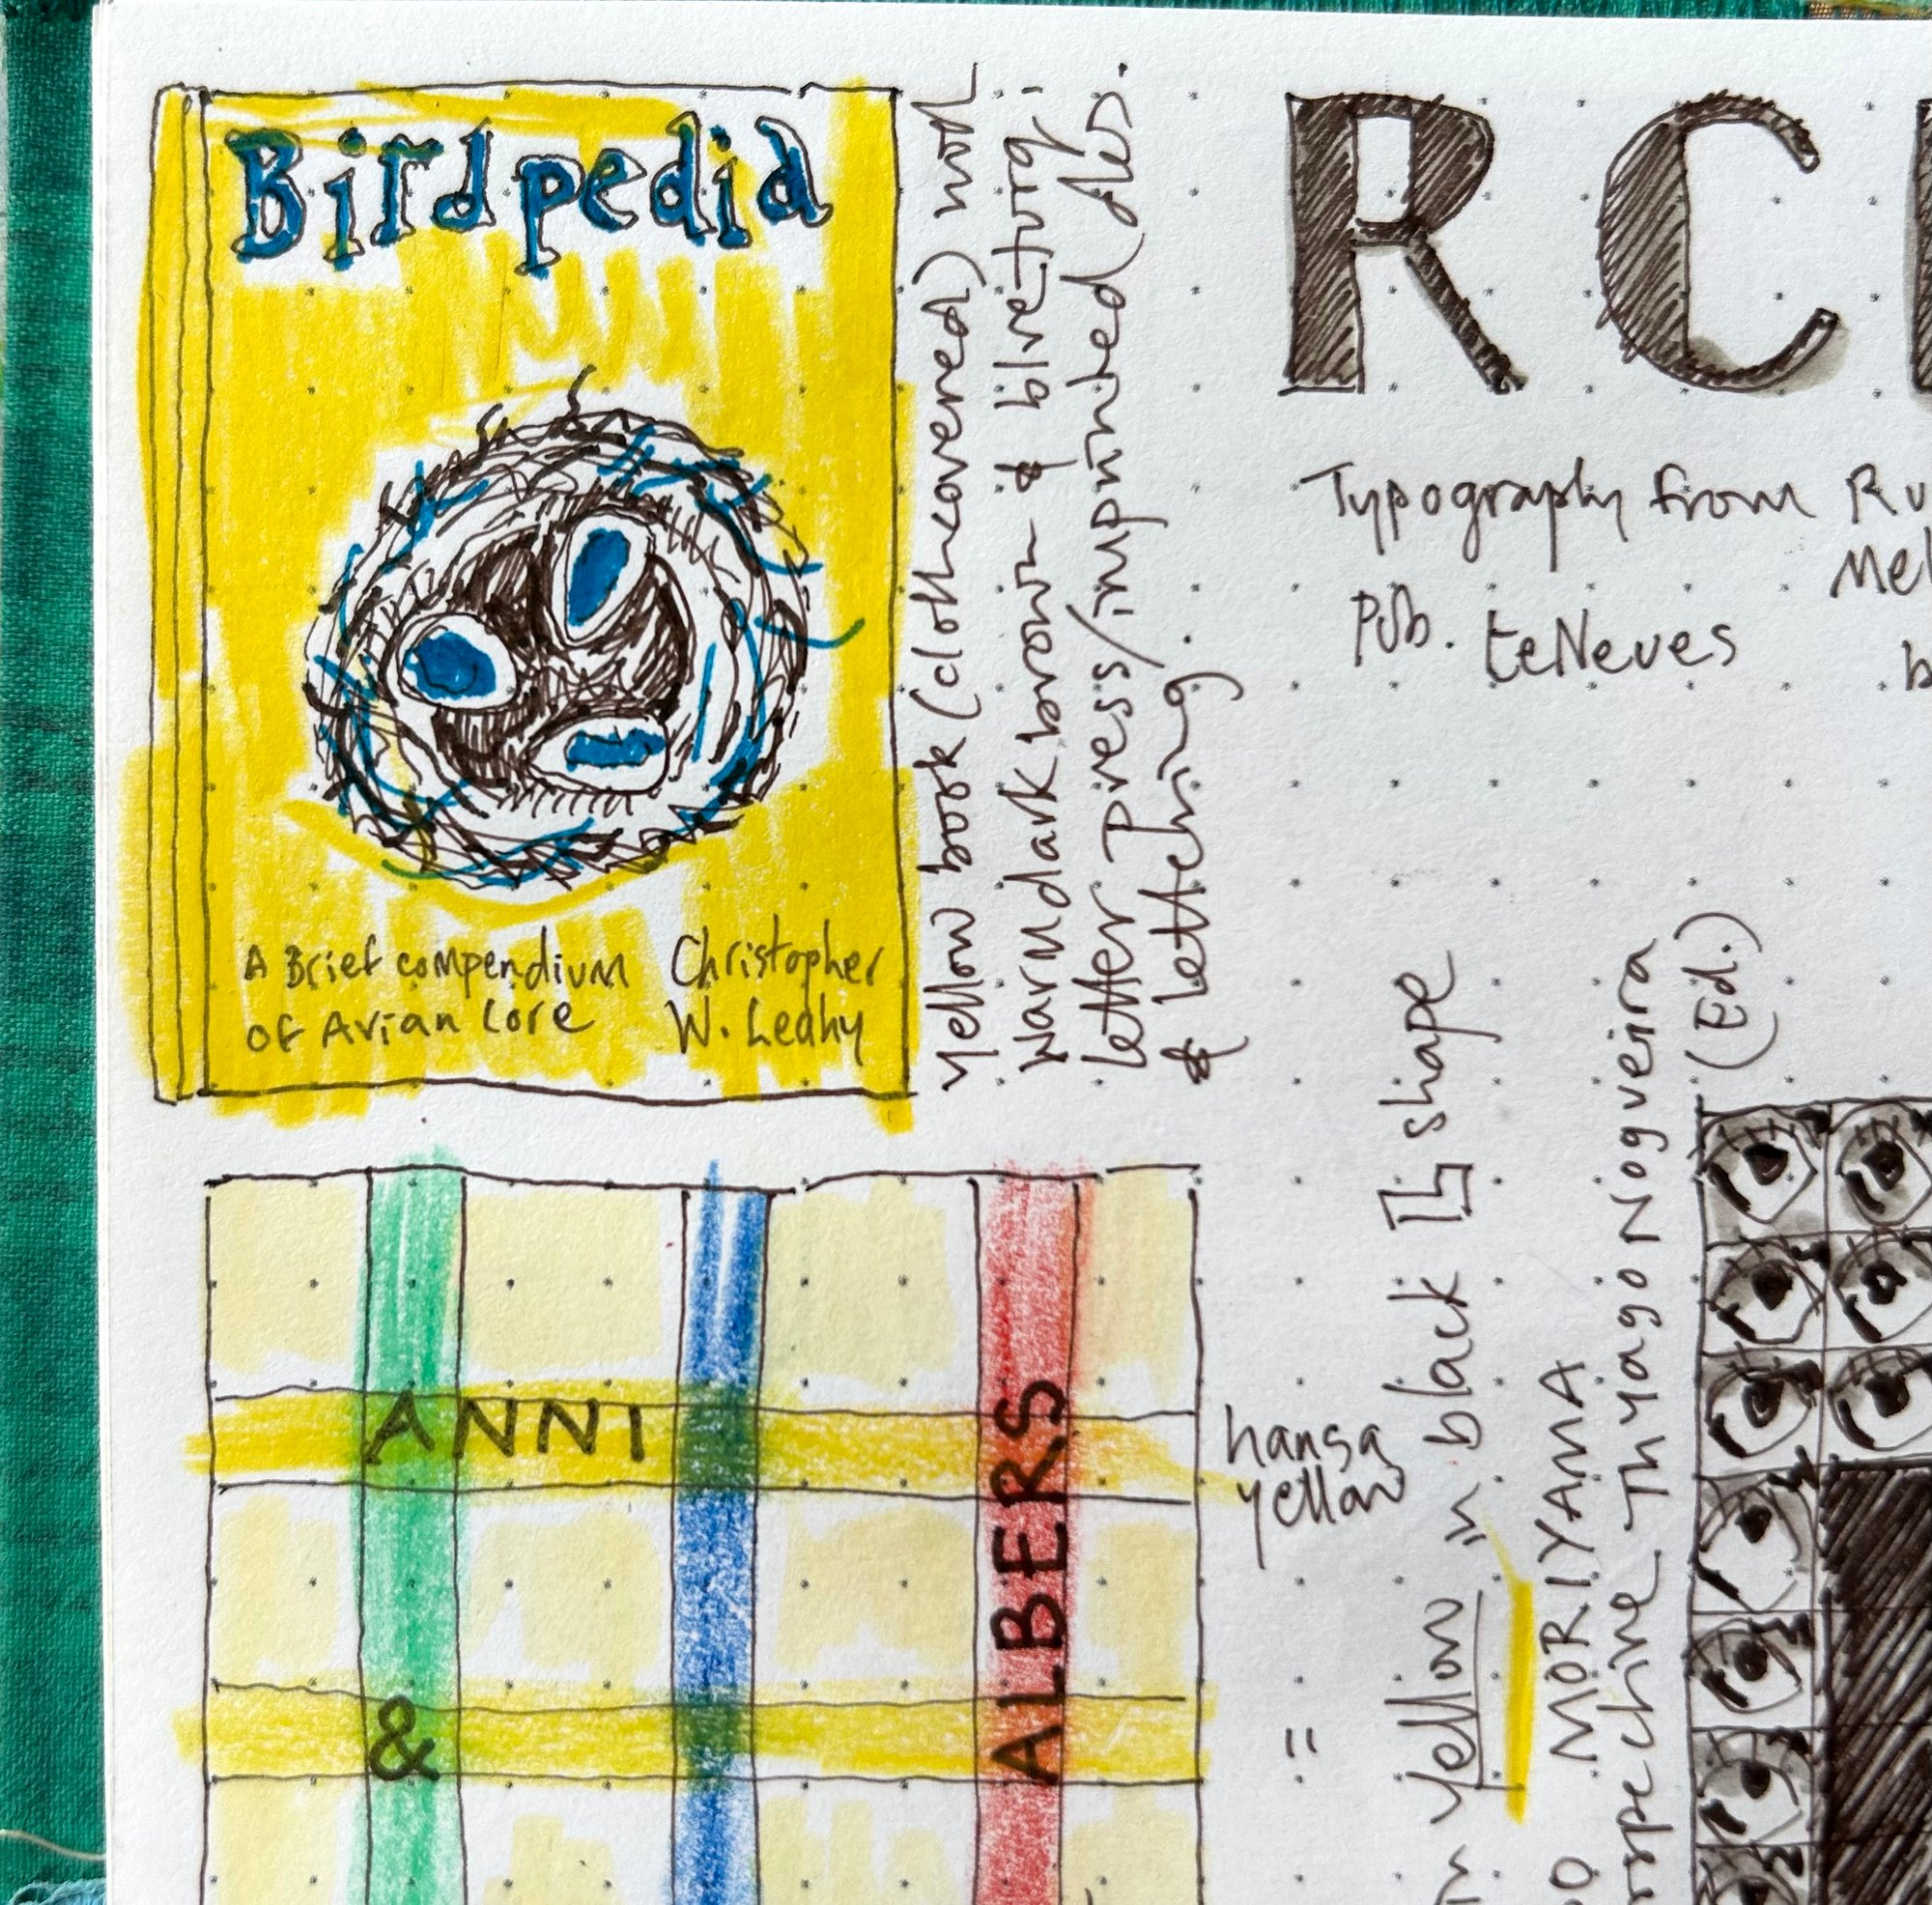 Birdpedia
A Brief compendium
of Avian Lore
Christopher
W. Leahy
yellow book (clothcovered) with
warm dark brown & blue-tviq
letter press/imprinted des.
& lettering.
RC
Typography from Ru
Mel
Pub. teNeues
b
ANNI
&
ALBERS
hansa
yellow
=
yellow in black shape
MORIYAMA
Thyago Nogueira
(Ed.)